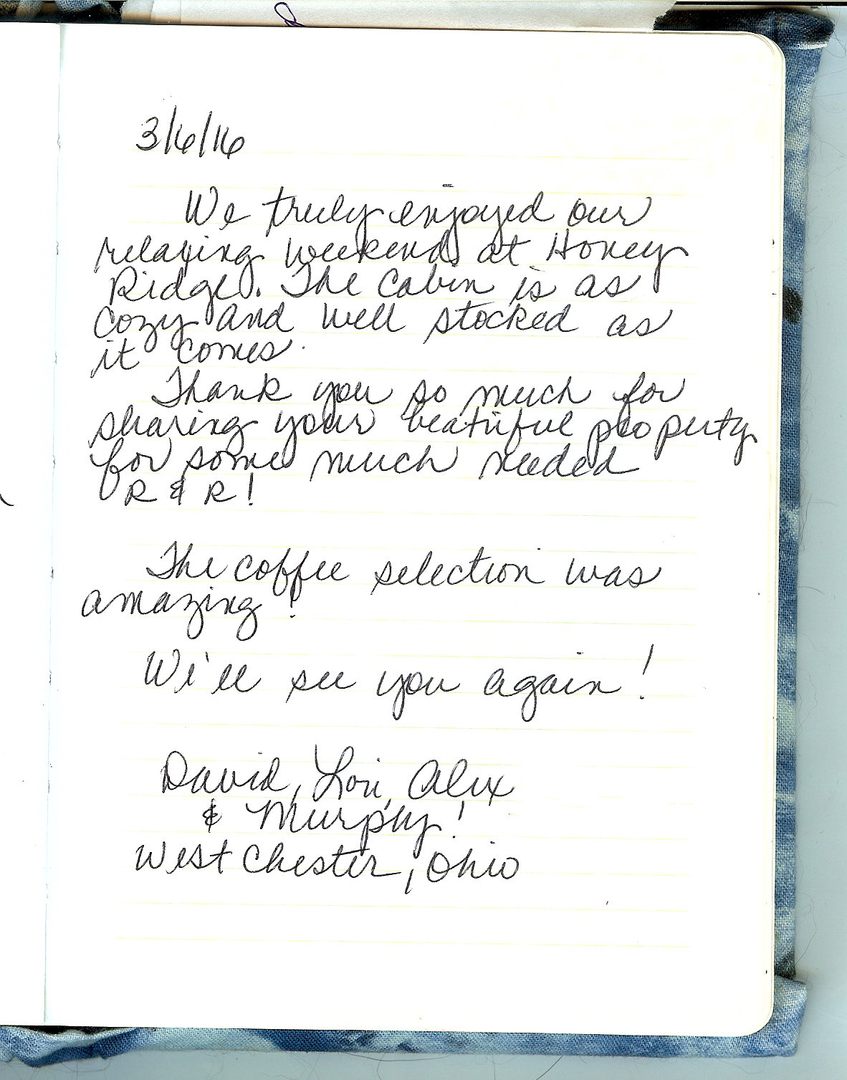 3/6/16
We truly enjoyed our
relaxing weekend at Honey
Ridge. The cabin is as
cozy and well stocked as
it comes.
Thank you so much for
sharing your beatiful property
for some much needed
R & R!
The coffee selection was
amazing!
We'll see you again!
David, Lori, Alex
& Murphy!
West Chester, Ohio